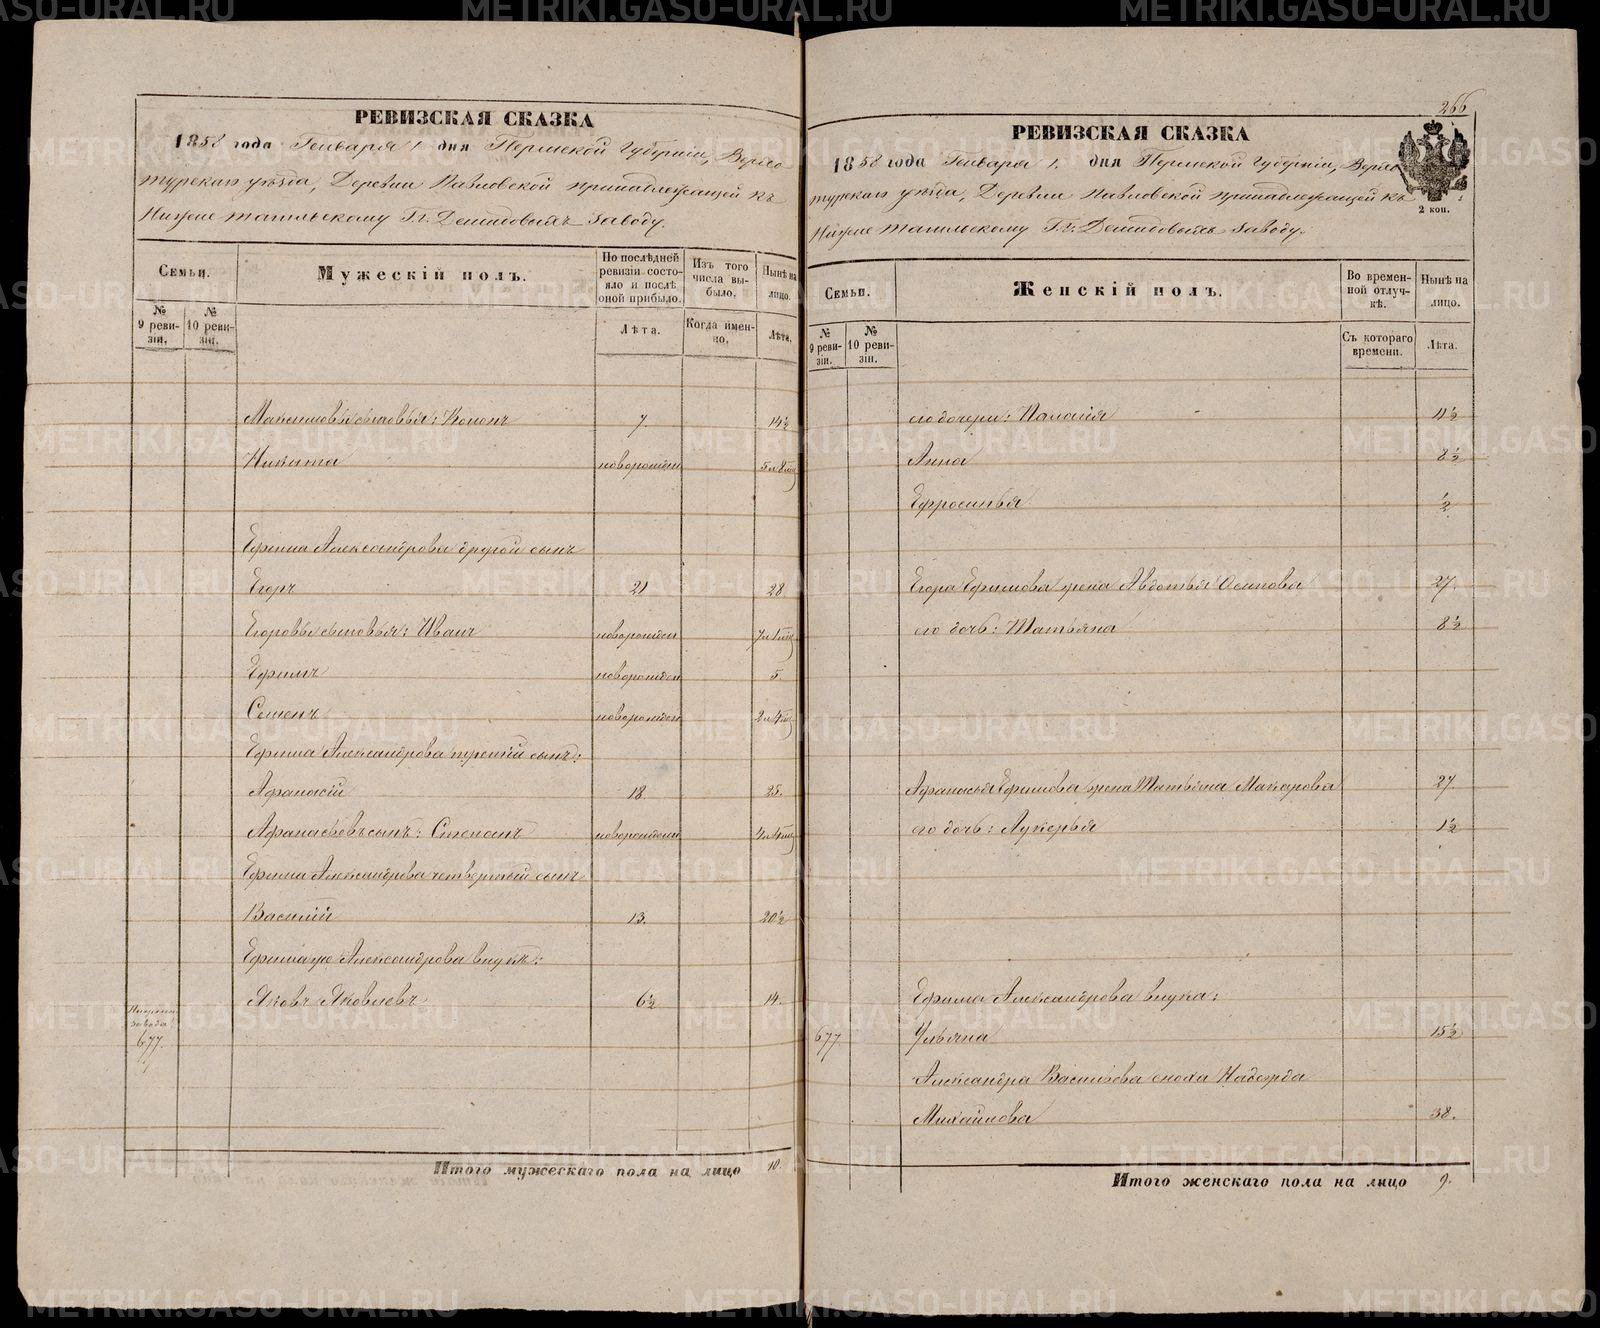 РЕВИЗСКАЯ СКАЗКА
1858 года Генваря 1 дня Пермской Губерніи, Верхо
турскаго уѣзда, Деревни Павловской принадлежащей къ
Нижне тагильскому Гг. Демидовыхъ заводу.
Семьи.
Мужескій полъ.
По послѣдней ревизіи состояло и послѣ оной прибыло.
Изъ того числа выбыло.
Нынѣ на лицо.
№ 9 ревизіи.
№ 10 ревизіи.
Лѣта.
Когда именно.
Лѣта.
Максимовы сыновья: Кононъ 7. 14½
Никита новорожден 5 л 8 мѣ
Ефима Александрова другой сынъ
Егоръ 21 28
Егоровы сыновья: Иванъ новорожден 7 л 1 мѣ
Ефимъ новорожден 5.
Семенъ новорожден 2 л 4 мѣ
Ефима Александрова третій сынъ:
Афанасій 18. 25.
Афанасьевъ сынъ: Степанъ новорожден 4 мѣ
Ефима Александрова четвертый сынъ
Василій 13. 20½
Ефима же Александрова внукъ:
Яковъ Яковлевъ 6½ 14.
завода
677.
Итого мужескаго пола на лицо 10.
266
РЕВИЗСКАЯ СКАЗКА
2 коп.
1858 года Генваря 1. дня Пермской Губерніи, Верхо
турскаго уѣзда, Деревни Павловской принадлежащей къ
Нижне тагильскому Гг. Демидовыхъ заводу.
Семьи.
Женскій полъ.
Во временной отлучкѣ.
Нынѣ на лицо.
№ 9 ревизіи.
№ 10 ревизіи.
Съ котораго времени.
Лѣта.
его дочери: Палагія 11½
Анна 8½
Ефросинья ½
Егора Ефимова жена Авдотья Осипова 27.
его дочь: Татьяна 8½
Афанасья Ефимова жена Татьяна Макарова 27.
его дочь: Лукерья 1½
Ефима Александрова внука:
677 Ульяна 15½
Александра Васильева сноха Надежда
Михайлова 38.
Итого женскаго пола на лицо 9.
METRIKI.GASO-URAL.RU